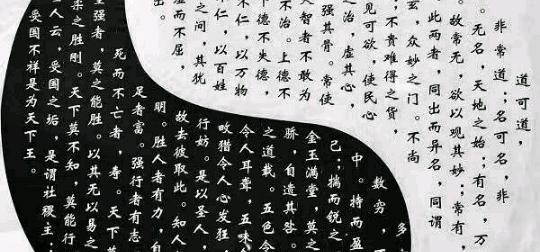 道可道，
非常道；名可名，非
。无名，天地之始；有名，万
。故常无，欲以观其妙；常有
此两者，同出而异名，同谓
玄，众妙之门。不尚
，不贵难得之货，
见可欲，使民心
之治，虚其心，
强其骨。常使
智者不敢为
不治。上德不
下德不失德，
不仁，以万物
仁，以百姓
之间，其犹
虚而不屈，
出。
多
数穷，
中。持而盈
己；揣而锐之
金玉满堂，莫之
骄，自遗其咎。
之道哉。五色令
令人耳聋，五味
畋猎令人心发狂
行妨。是以圣人，
故去彼取此。知人
明。胜人者有力，自
足者富。强行者有志
死而不亡者，寿。天下
强者，莫之能胜。以其无以易之
柔之胜刚。天下莫不知，莫能行
人云，受国之垢，是谓社稷主；
受国不祥是为天下王。